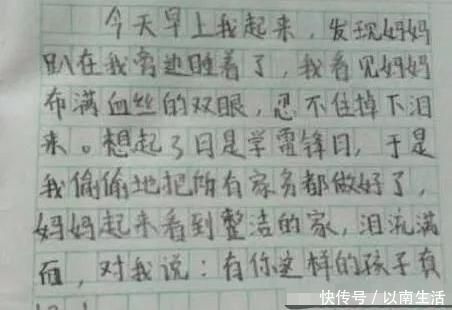 今天早上我起来，发现妈妈
趴在我旁边睡着了，我看见妈妈
布满血丝的双眼，忍不住掉下泪
来。想起3日是学雷锋日，于是
我偷偷地把所有家务都做好了，
妈妈起来看到整洁的家，泪流满
面，对我说：有你这样的孩子真
快传号/以南生活